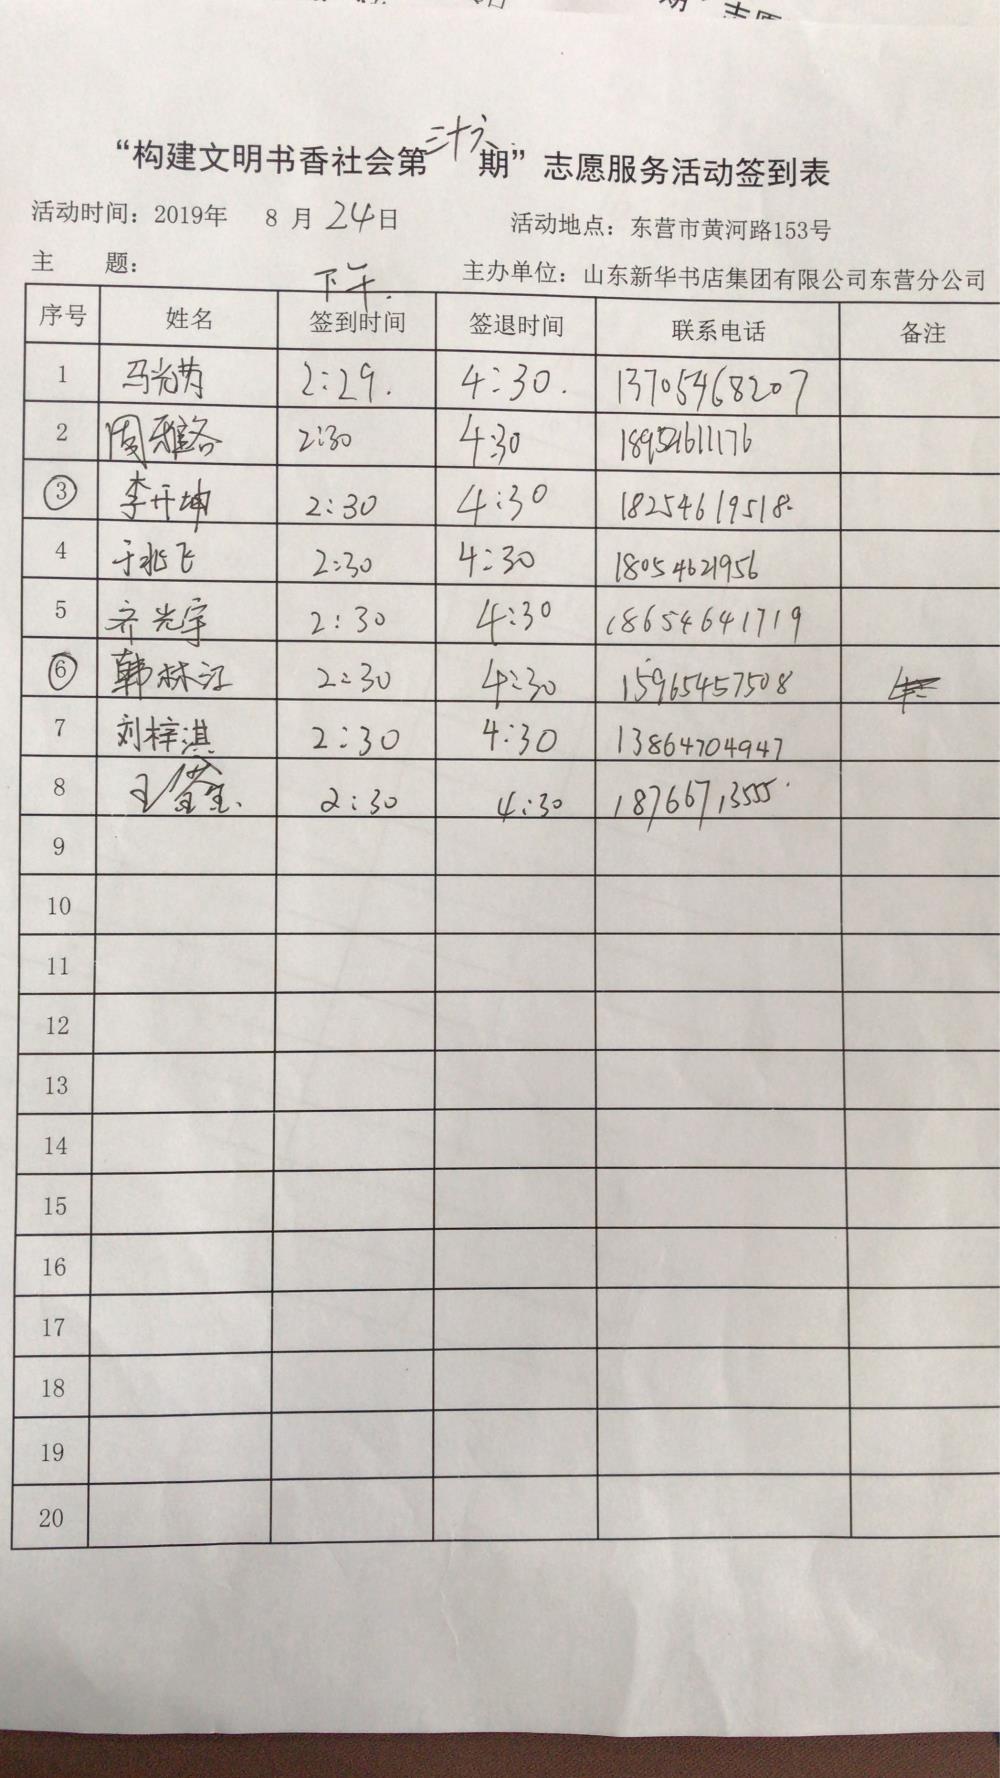 “构建文明书香社会第三十六期”志愿服务活动签到表
活动时间：2019年 8 月 24日 活动地点：东营市黄河路153号
主 题： 主办单位：山东新华书店集团有限公司东营分公司
下午.
序号 姓名 签到时间 签退时间 联系电话 备注
1 马光 2:29. 4:30. 13705468207
2 周雅洛 2:30 4:30
3 李开坤 2:30 4:30 18254619518.
4 于兆飞 2:30 4:30 18054621956
5 齐光宇 2:30 4:30 18654641719
6 韩林江 2:30 4:30 15965457508
7 刘梓淇 2:30 4:30 13864704947
8 王 2:30 4:30 18766713555
9
10
11
12
13
14
15
16
17
18
19
20